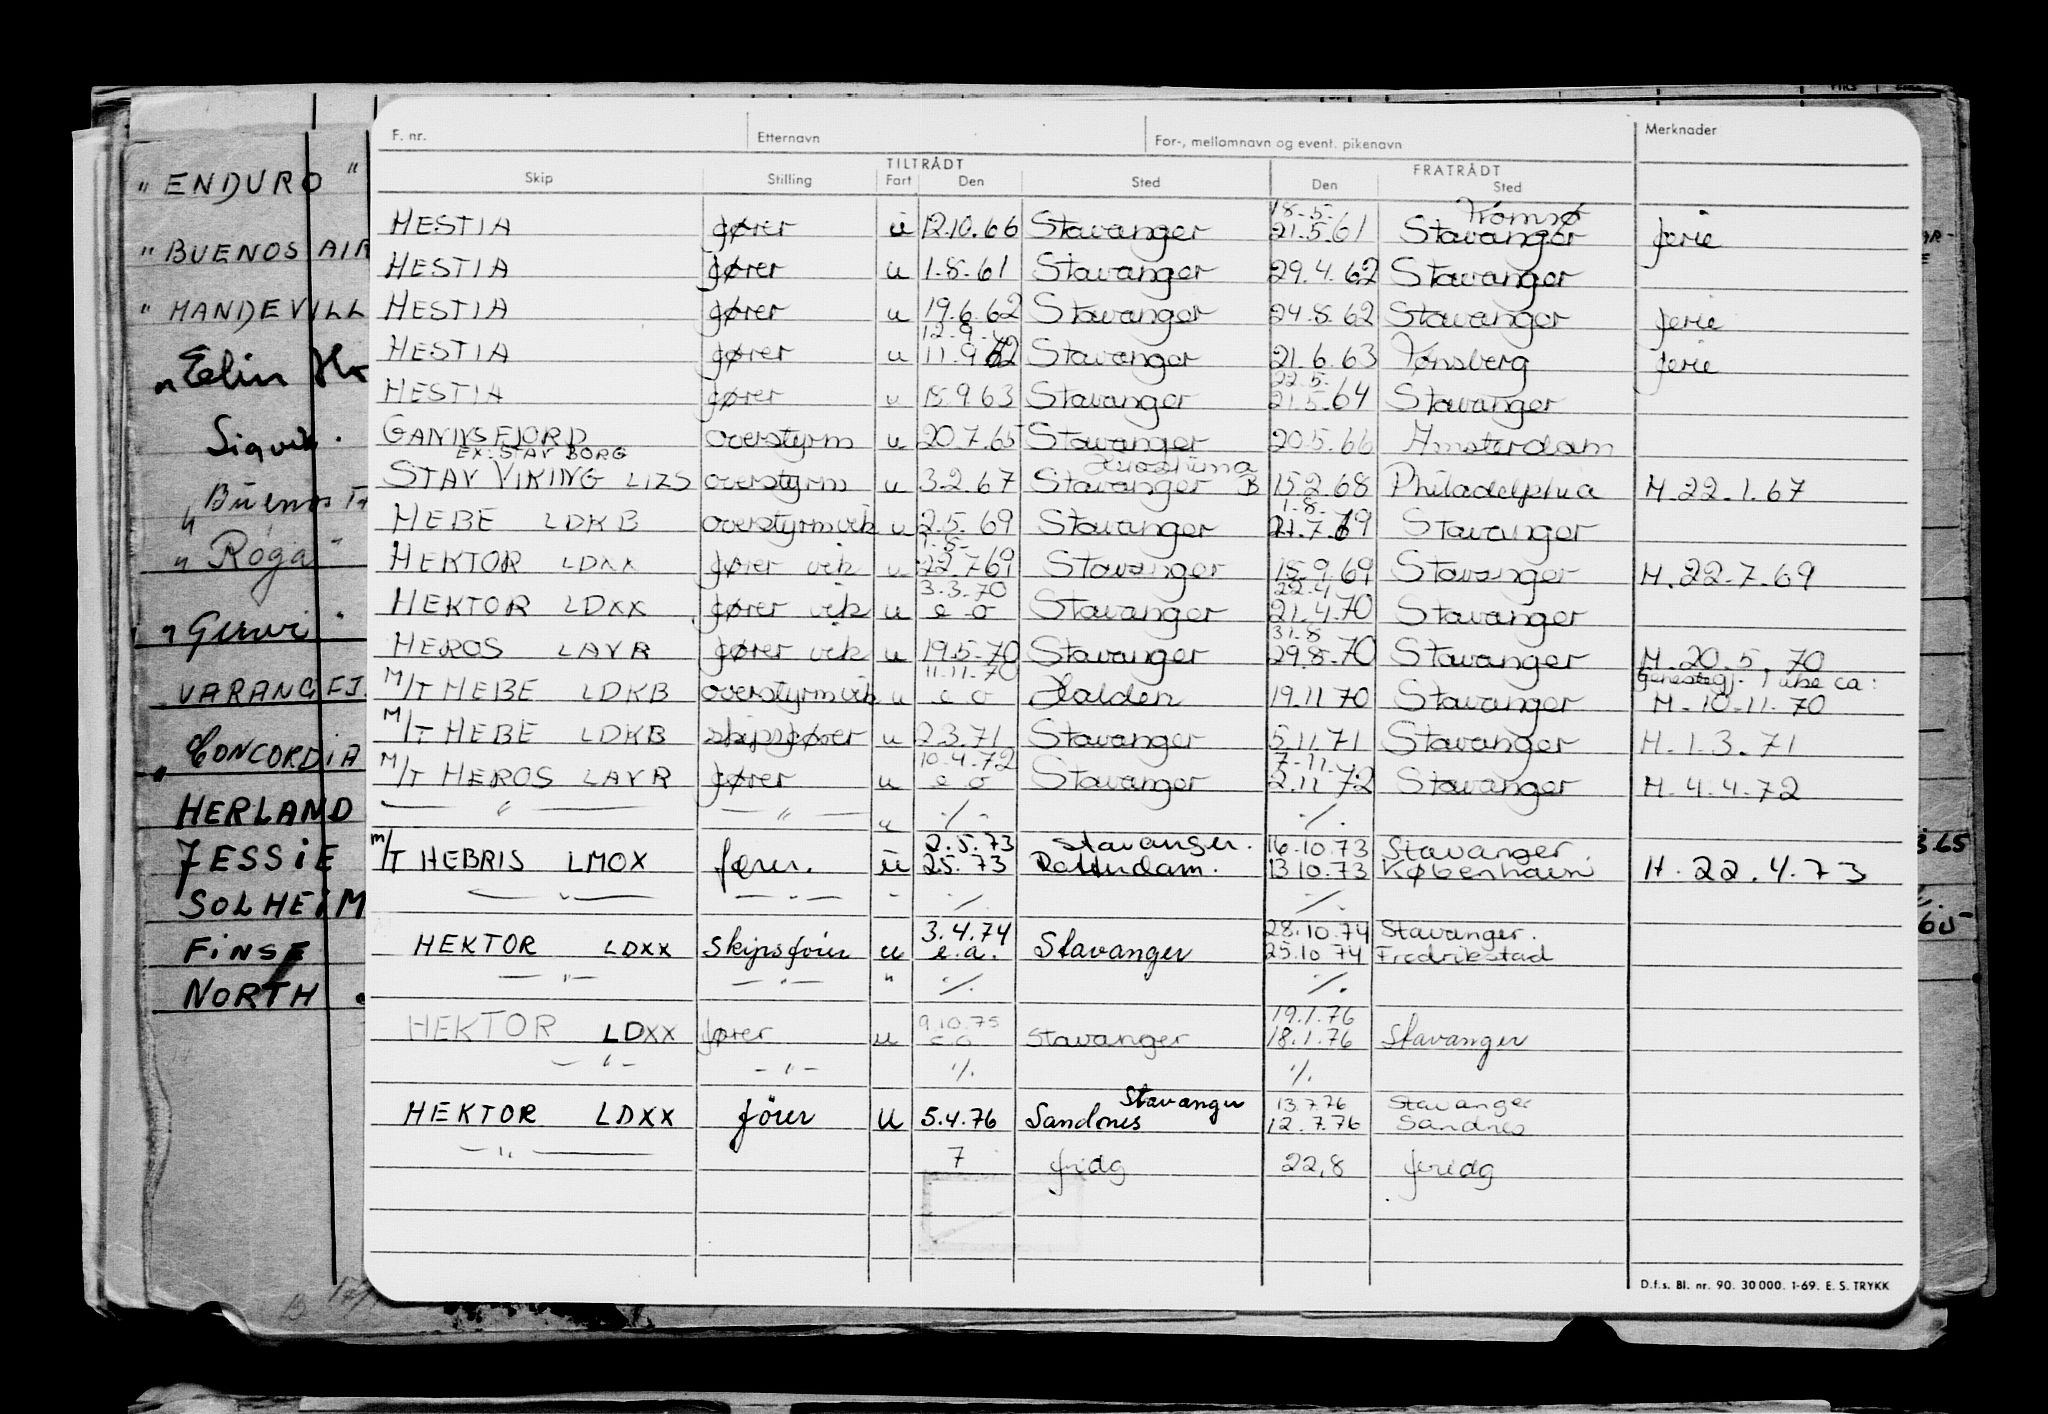 F. nr. Etternavn For-, mellomnavn og event. pikenavn Merknader
TILTRÅDT FRATRÅDT
Skip Stilling Fart Den Sted Den Sted
18-5- Tromsø
HESTIA fører u 12.10.66 Stavanger 21.5.61 Stavanger ferie
HESTIA fører u 1.8.61 Stavanger 29.4.62 Stavanger
HESTIA fører u 19.6.62 Stavanger 24.8.62 Stavanger ferie
12.9.
HESTIA fører u 11.9.62 Stavanger 21.6.63 Tønsberg ferie
22.5.
HESTIA fører u 18.9.63 Stavanger 21.5.64 Stavanger
GANNSFJORD overstyrm u 20.7.65 Stavanger 20.5.66 Amsterdam
EX: STAV BORG
STAV VIKING LIZS overstyrm u 3.2.67 Stavanger B 15.2.68 Philadelphia M.22.1.67
1.8.
HEBE LDKB overstyrm vik u 2.5.69 Stavanger 21.7.69 Stavanger
1.8.
HEKTOR LDXX fører vik u 22.7.69 Stavanger 18.9.69 Stavanger M.22.7.69
3.3.70 22.4
HEKTOR LDXX fører vik u e o Stavanger 21.4.70 Stavanger
31.8
HEROS LAVR fører vik u 19.5.70 Stavanger 29.8.70 Stavanger M.20.5.70
11.11.70
M/T HEBE LDKB overstyrm vik u e o Halden 19.11.70 Stavanger M.10.11.70
M/T HEBE LDKB skipsfører u 2.3.71 Stavanger 5.11.71 Stavanger M.1.3.71
10.4.72 7.11.
M/T HEROS LAVR fører u e o Stavanger 2.11.72 Stavanger M.4.4.72
— " — — " — " ./. ./.
2.5.73 Stavanger. 16.10.73 Stavanger
M/T HEBRIS LMOX fører. u 25.73 Rotterdam. 13.10.73 København M.22.4.73
— " — — " — " ./. ./.
3.4.74 28.10.74 Stavanger.
HEKTOR LDXX Skipsfører u e.a. Stavanger 25.10.74 Fredrikstad
— " — — " — " ./. ./.
9.10.75 19.1.76
HEKTOR LDXX fører u e.o Stavanger 18.1.76 Stavanger
— " — — " — ./. ./.
Stavanger 13.7.76 Stavanger
HEKTOR LDXX förer u 5.4.76 Sandnes 12.7.76 Sandnes
— " — 7 fridg 22,8 feridg
D.f.s. Bl. nr. 90. 30 000. 1-69. E. S. TRYKK
" ENDURO "
" BUENOS AIR
" MANDEVILL
" Elin
" Buenos
" Roga "
" Gurvi "
VARANGFJ.
" CONCORDIA
HERLAND
JESSIE
SOLHEIM
FINSE
NORTH
3.65
65